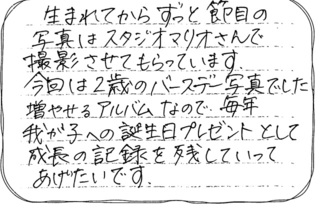 生まれてからずっと節目の
写真はスタジオマリオさんで
撮影させてもらっています.
今回は2歳のバースデー写真でした
増やせるアルバムなので、毎年
我が子への誕生日プレゼントとして
成長の記録を残していって
あげたいです.